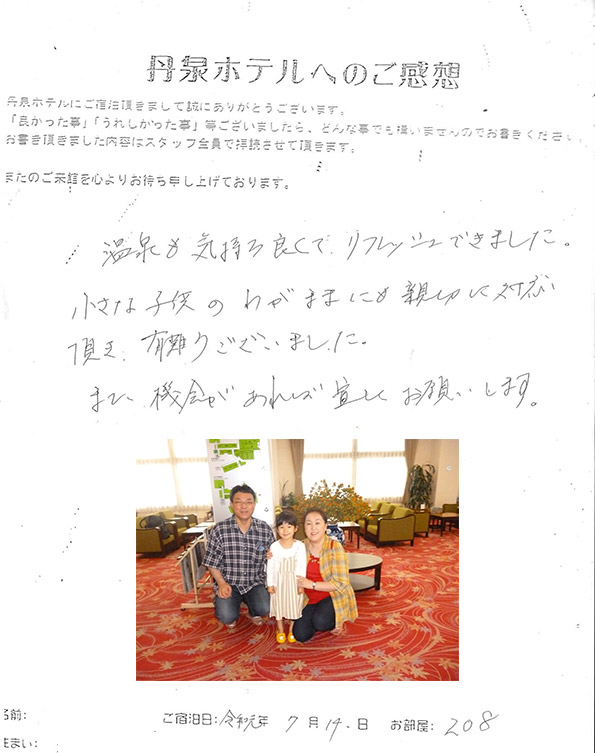 丹泉ホテルへのご感想
丹泉ホテルにご宿泊頂きまして誠にありがとうございます。
「良かった事」「うれしかった事」等ございましたら、どんな事でも構いませんのでお書きください
お書き頂きました内容はスタッフ全員で拝読させて頂きます。
またのご来館を心よりお待ち申し上げております。
温泉も気持ち良くて、リフレッシュできました。
小さな子供のわがままにも親切に対応
頂き、有難うございました。
また、機会があれば宜しくお願いします。
名前:
ご宿泊日:令和元年 7月14.日 お部屋:208
住まい: